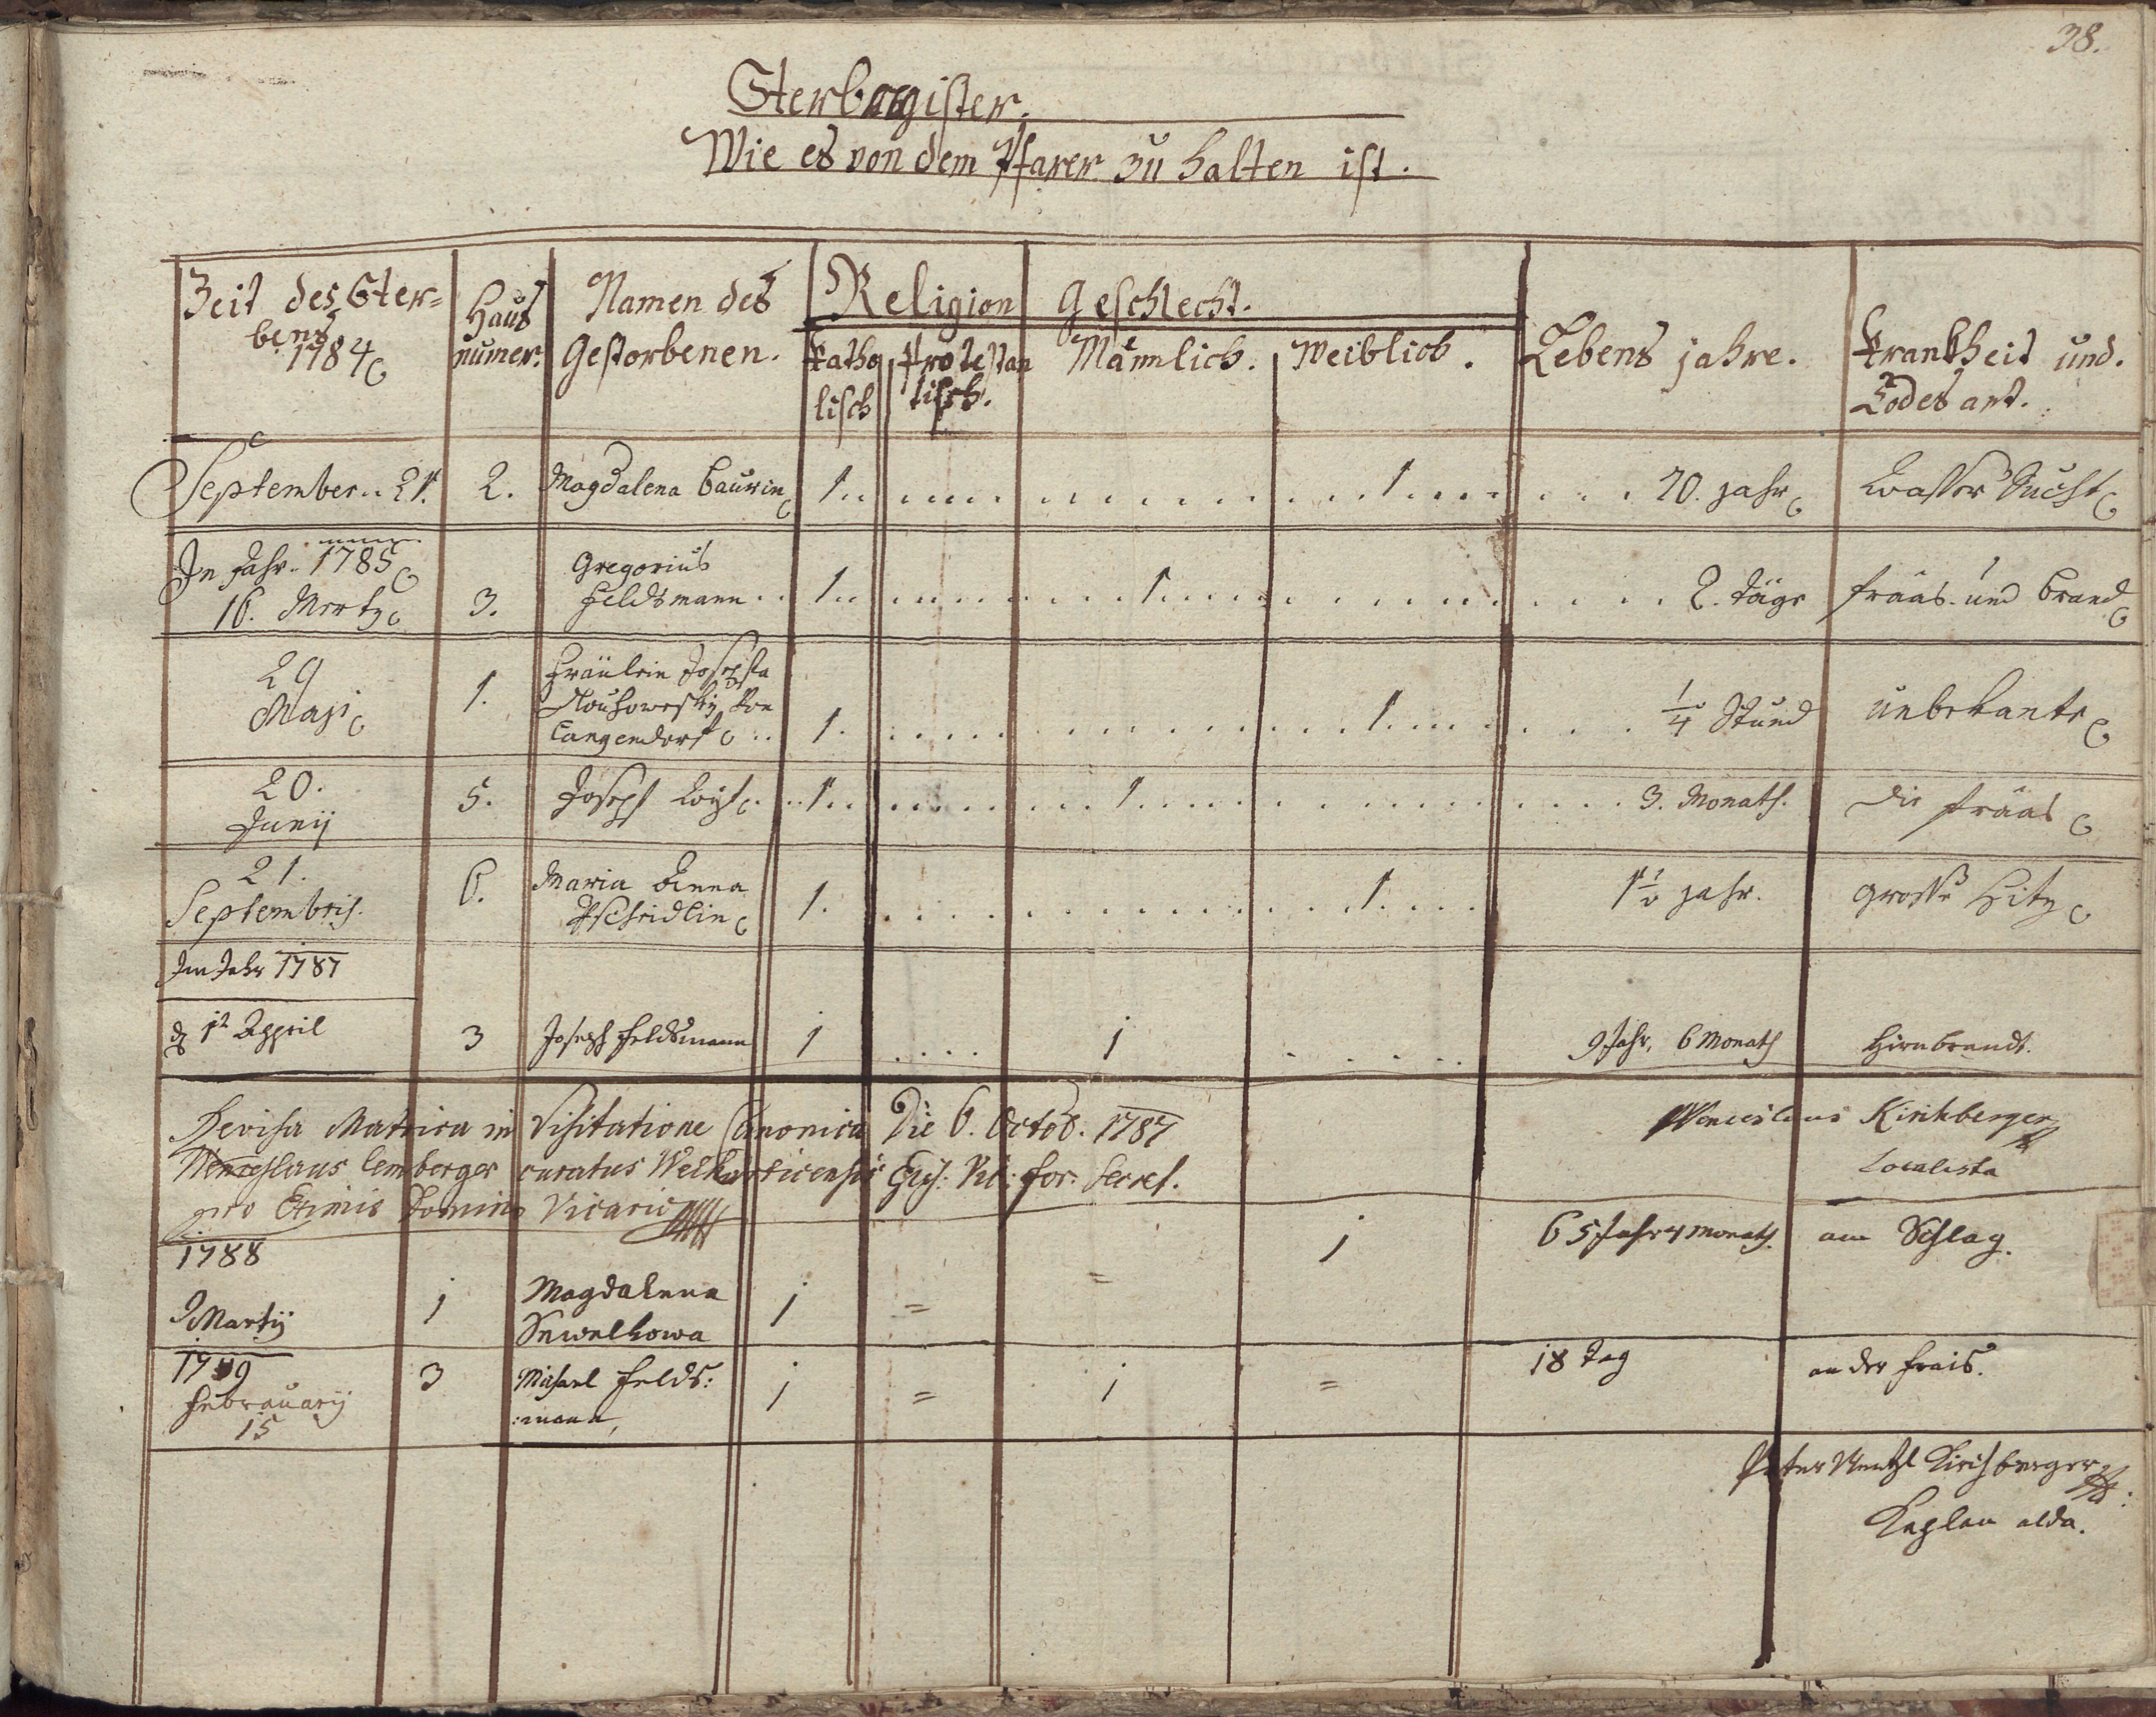 38.
Sterbregister.
Wie es von dem Pfarer zu halten ist.
Zeit des Ster=
bens
1784
Haus
numer.
Namen des
Gestorbenen.
Religion
Katho
lisch
Protestan
tisch.
Geschlecht.
Männlich. Weiblich.
Lebens jahre.
Krankheit und.
Todes art.
September.. 21. 2. Magdalena Baurin 1. 1. 70. jahr Wasser Sucht
In Jahr. 1785
16. Mertz 3. Gregorius
Feldsmann.. 1. 1. 2. täge frääs. und brand
29
Maji 1. Fräulein Josepha
von
Langendorf.. 1. 1. 1/4 Stund unbekante
20.
Junij 5. Joseph 1. 1. 3. Monath. die frääs
21.
Septembris. 6. Maria Anna
1. 1. 1 1/2 jahr. grosse Hitz
Im Jahr 1787
12 Appril 3 Joseph Feldsmann 1 .... 1 ..... 9 Jahr, 6 Monath Hirnbrandt.
Revisa Matrica in Visitatione Canonica Die 6. Octob. 1787
Wenceslaus Lemberger curatus
Domino Vicario
Wenceslaus Kirchberger
Localista
1788
9 Martij 1 Magdalena
Sewelkowa 1 = = 1 65 Jahr 4 Monath. am Schlag.
1789
Februarij
15 3 Michael Felds:
:mann, 1 = 1 = 18 Tag an der frais.
Pater Wentzl Kirchberger
Kaplan alda.